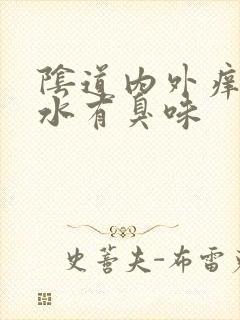 陰道内外痒
水有臭味
史蒂夫-布雷